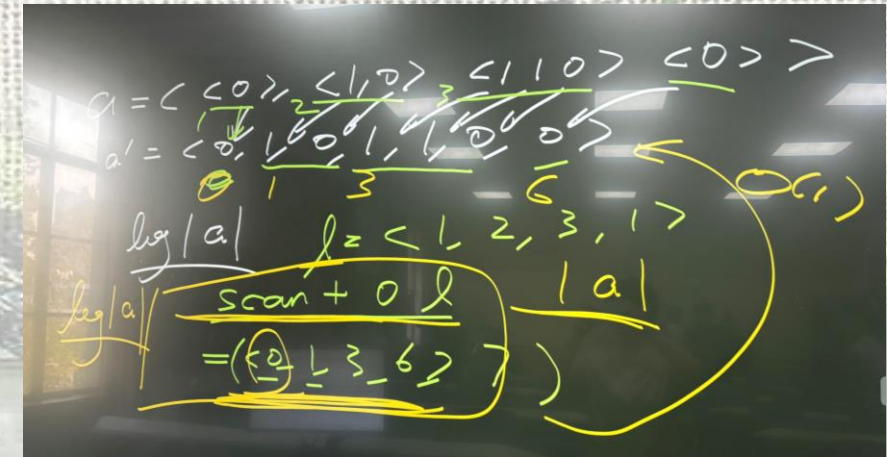 a = < <0>, <1,0> <1 1 0> <0> >
1 2 3
a' = < 0, 1, 0, 1, 1, 0, 0 >
0 1 3 6 O(1)
log|a| l = < 1, 2, 3, 1 >
log|a| scan + 0 l |a|
= (<0 1 3 6>, 7)